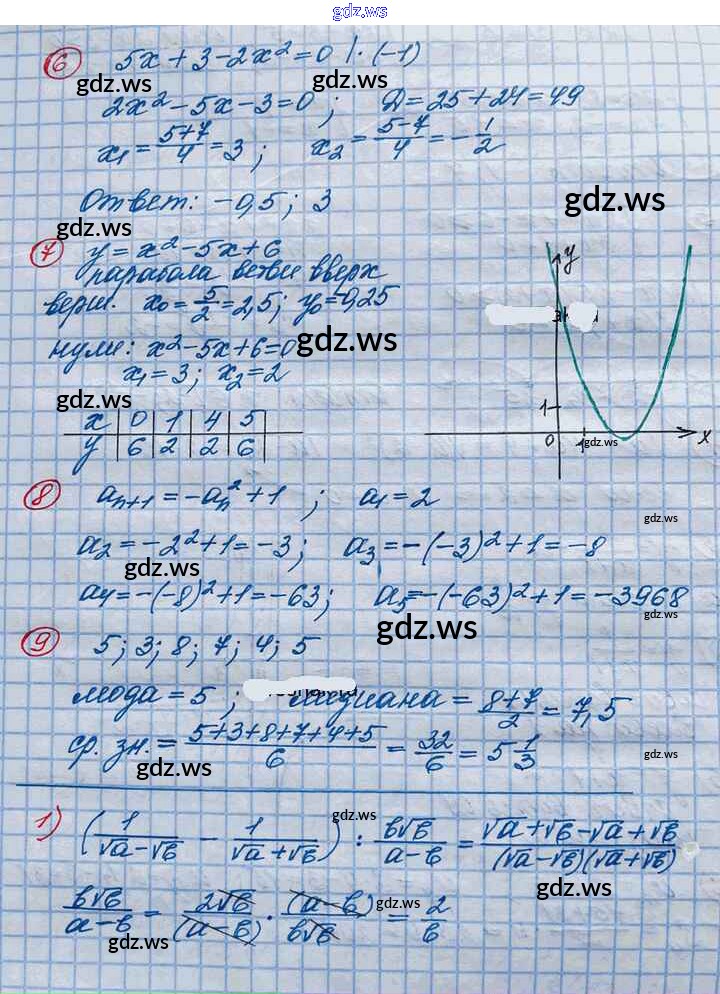 gdz.ws
6 5x + 3 - 2x² = 0 | · (-1)
gdz.ws gdz.ws
2x² - 5x - 3 = 0 ; Д = 25 + 24 = 49
x₁ = (5+7)/4 = 3 ; x₂ = (5-7)/4 = -1/2
Ответ: -0,5 ; 3
gdz.ws gdz.ws
7 y = x² - 5x + 6
парабола ветви вверх
верш. x₀ = 5/2 = 2,5 ; y₀ = -0,25
gdz.ws
нули: x² - 5x + 6 = 0
x₁ = 3 ; x₂ = 2
gdz.ws
x | 0 | 1 | 4 | 5 |
y | 6 | 2 | 2 | 6 |
y
1
0 1 x
gdz.ws
8 aₙ₊₁ = -aₙ² + 1 ; a₁ = 2
gdz.ws gdz.ws
a₂ = -2² + 1 = -3 ; a₃ = -(-3)² + 1 = -8
gdz.ws
a₄ = -(-8)² + 1 = -63 ; a₅ = -(-63)² + 1 = -3968
gdz.ws gdz.ws
9 5 ; 3 ; 8 ; 7 ; 4 ; 5
мода = 5 ; медиана = (8+7)/2 = 7,5
ср. зн. = (5+3+8+7+4+5)/6 = 32/6 = 5 1/3
gdz.ws gdz.ws
1) (1/(√a-√в) - 1/(√a+√в)) : в√в/(a-в) = (√a+√в-√a+√в)/((√a-√в)(√a+√в))
gdz.ws gdz.ws
в√в/(a-в) = 2√в/(a-в) · (a-в)/в√в = 2/в
gdz.ws gdz.ws